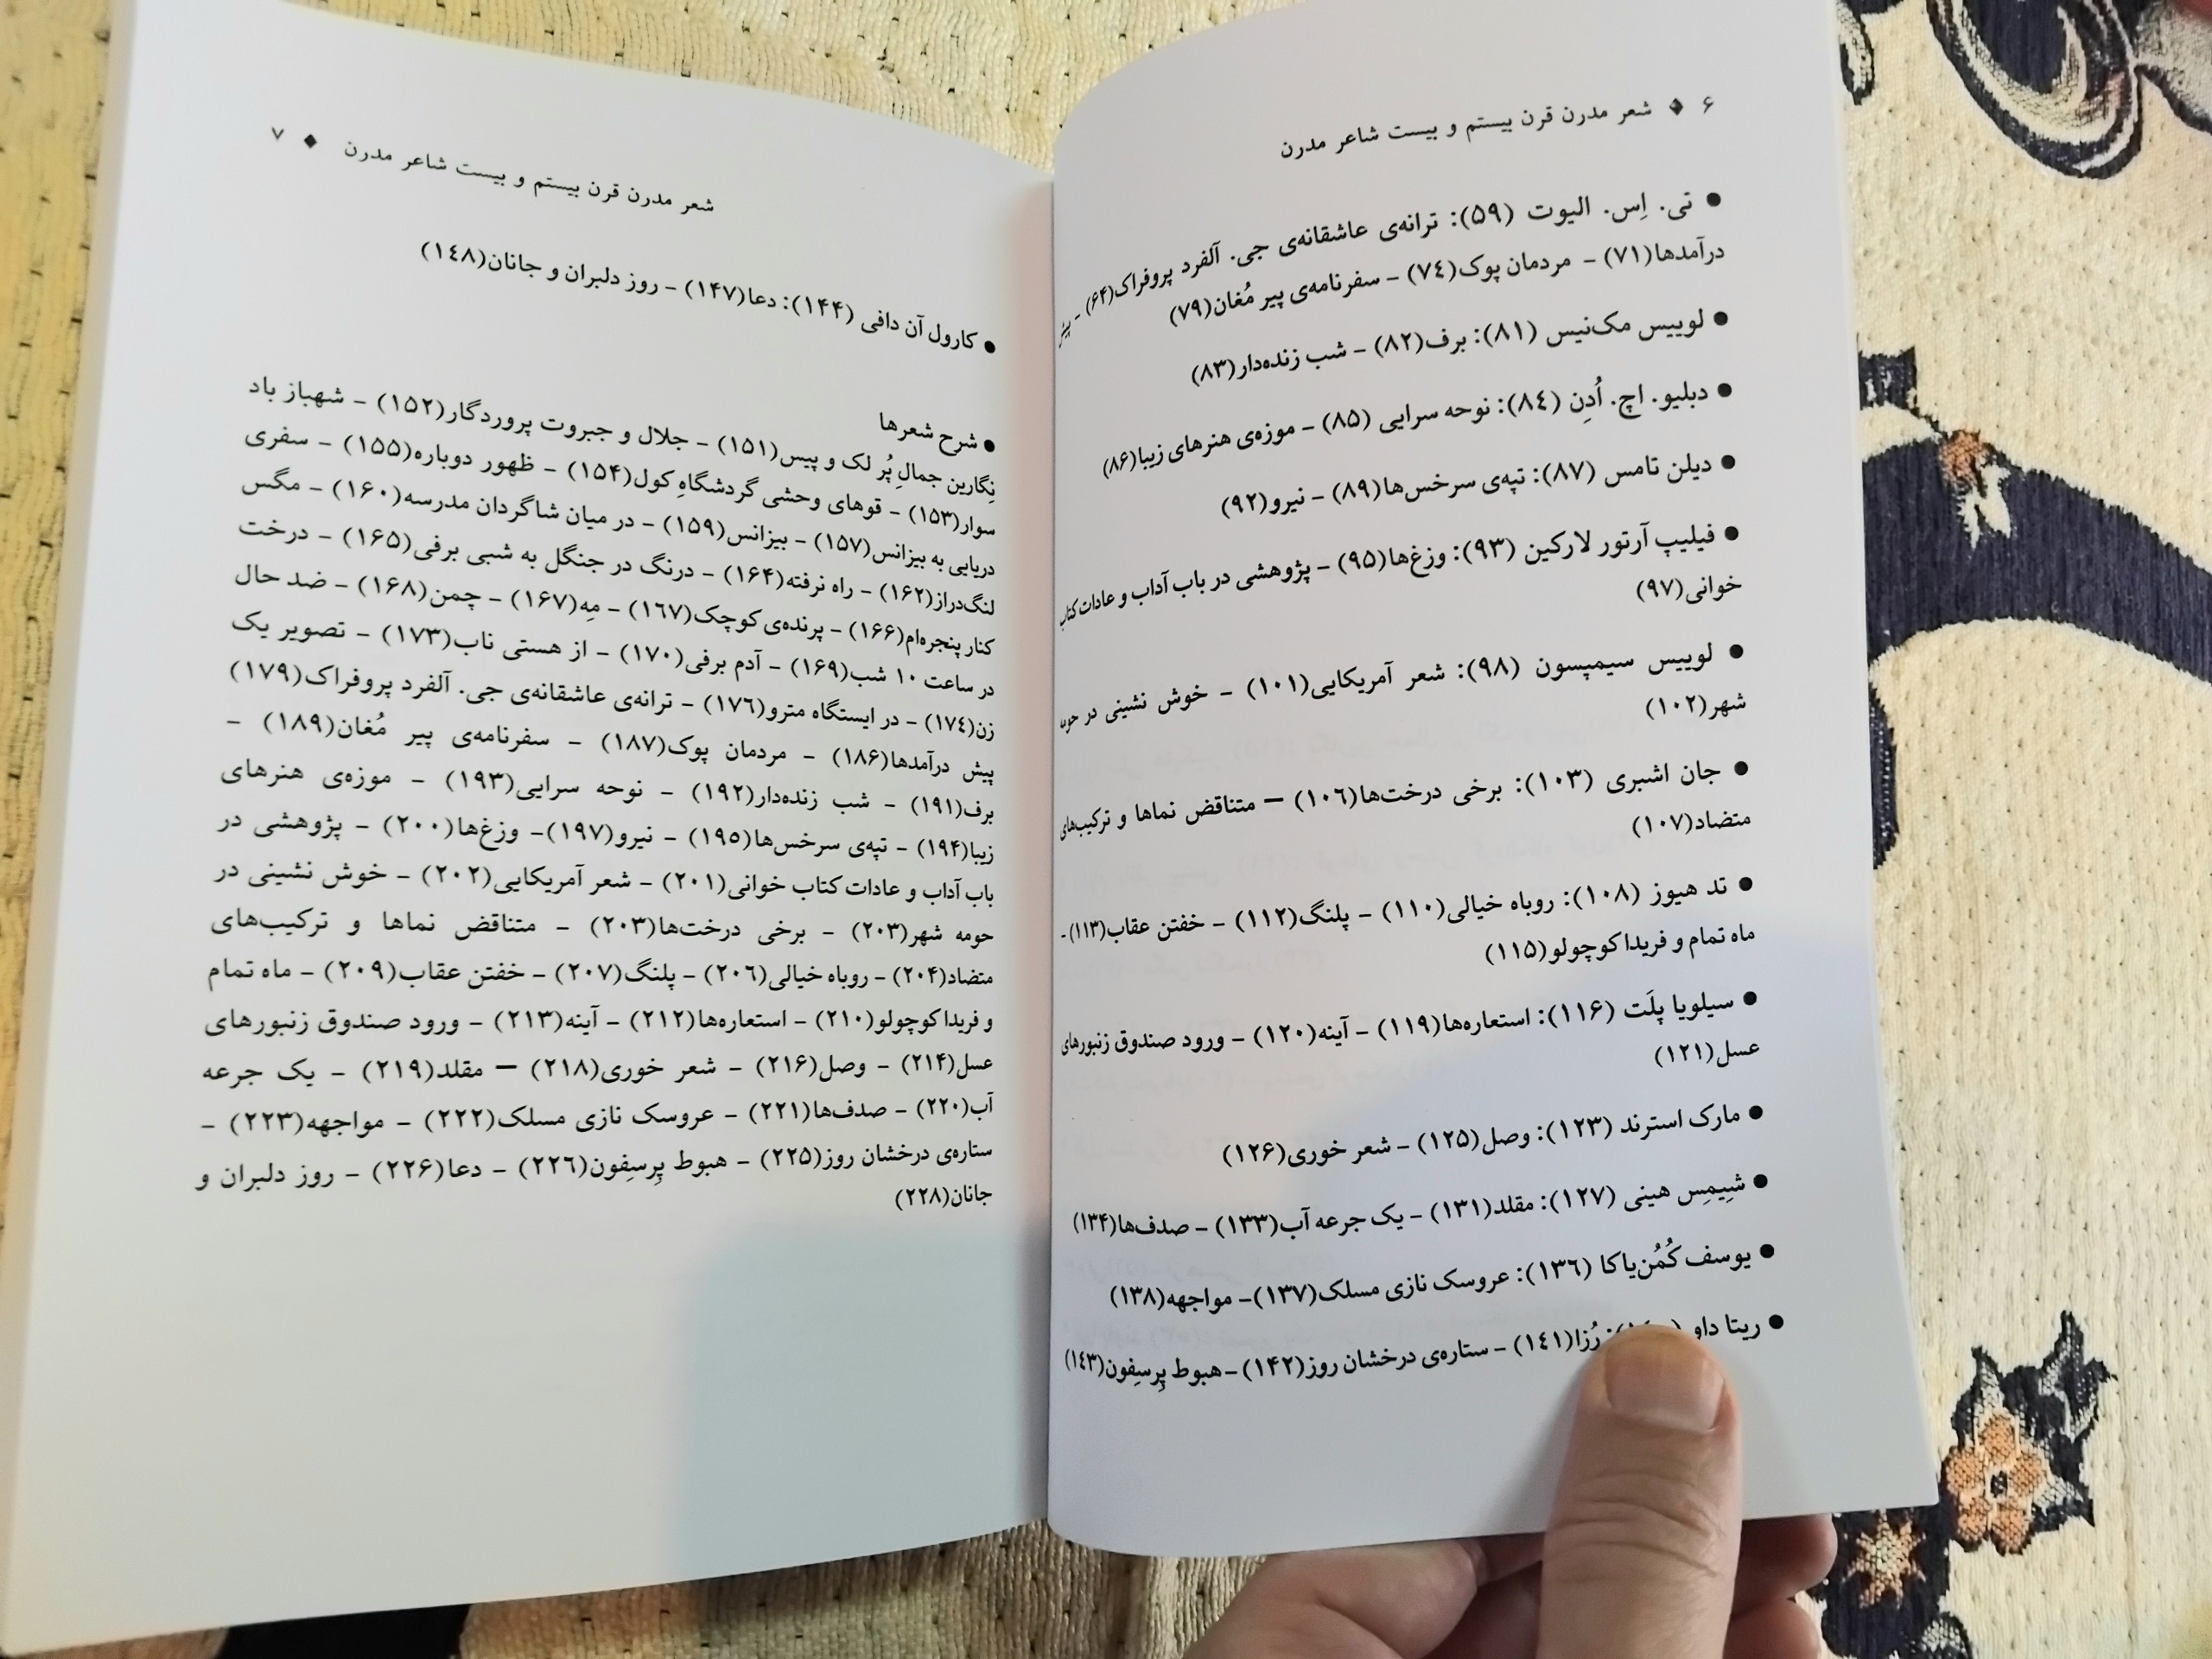 ۶ ◆ شعر مدرن قرن بیستم و بیست شاعر مدرن
● تی. اِس. الیوت (۵۹): ترانه‌ی عاشقانه‌ی جی. آلفرد پروفراک(۶۴) - پیش
درآمدها(۷۱) - مردمان پوک(۷٤) - سفرنامه‌ی پیر مُغان(۷۹)
● لوییس مک‌نیس (۸۱): برف(۸۲) - شب زنده‌دار(۸۳)
● دبلیو. اچ. اُدِن (۸٤): نوحه سرایی (۸۵) - موزه‌ی هنرهای زیبا(۸۶)
● دیلن تامس (۸۷): تپه‌ی سرخس‌ها(۸۹) - نیرو(۹۲)
● فیلیپ آرتور لارکین (۹۳): وزغ‌ها(۹۵) - پژوهشی در باب آداب و عادات کتاب
خوانی(۹۷)
● لوییس سیمپسون (۹۸): شعر آمریکایی(۱۰۱) - خوش نشینی در حومه
شهر(۱۰۲)
● جان اشبری (۱۰۳): برخی درخت‌ها(۱۰٦) – متناقض نماها و ترکیب‌های
متضاد(۱۰۷)
● تد هیوز (۱۰۸): روباه خیالی(۱۱۰) - پلنگ(۱۱۲) - خفتن عقاب(۱۱۳) -
ماه تمام و فریدا کوچولو(۱۱۵)
● سیلویا پِلَت (۱۱۶): استعاره‌ها(۱۱۹) - آینه(۱۲۰) - ورود صندوق زنبورهای
عسل(۱۲۱)
● مارک استرند (۱۲۳): وصل(۱۲۵) - شعر خوری(۱۲۶)
● شِیمِس هینی (۱۲۷): مقلد(۱۳۱) - یک جرعه آب(۱۳۳) - صدف‌ها(۱۳۴)
● یوسف کُمُن‌یاکا (۱۳٦): عروسک نازی مسلک(۱۳۷)- مواجهه(۱۳۸)
● ریتا داو رُزا(۱٤۱) - ستاره‌ی درخشان روز(۱۴۲) -هبوط پِرسِفون(۱٤۳)
شعر مدرن قرن بیستم و بیست شاعر مدرن ◆ ۷
● کارول آن دافی (۱۴۴): دعا(۱۴۷) - روز دلبران و جانان(۱٤۸)
● شرح شعرها
نِگارین جمالِ پُر لک و پیس(۱۵۱) - جلال و جبروت پروردگار(۱۵۲) - شهباز باد
سوار(۱۵۳) - قوهای وحشی گردشگاهِ کول(۱۵۴) - ظهور دوباره(۱۵۵) - سفری
دریایی به بیزانس(۱۵۷) - بیزانس(۱۵۹) - در میان شاگردان مدرسه(۱۶۰) - مگس
لنگ‌دراز(۱۶۲) - راه نرفته(۱۶۴) - درنگ در جنگل به شبی برفی(۱۶۵) - درخت
کنار پنجره‌ام(۱۶۶) - پرنده‌ی کوچک(۱٦۷) - مِه(۱۶۷) - چمن(۱۶۸) - ضد حال
در ساعت ۱۰ شب(۱۶۹) - آدم برفی(۱۷۰) - از هستی ناب(۱۷۳) - تصویر یک
زن(۱۷٤) - در ایستگاه مترو(۱۷٦) - ترانه‌ی عاشقانه‌ی جی. آلفرد پروفراک(۱۷۹)
پیش درآمدها(۱۸۶) - مردمان پوک(۱۸۷) - سفرنامه‌ی پیر مُغان(۱۸۹) -
برف(۱۹۱) - شب زنده‌دار(۱۹۲) - نوحه سرایی(۱۹۳) - موزه‌ی هنرهای
زیبا(۱۹۴) - تپه‌ی سرخس‌ها(۱۹۵) - نیرو(۱۹۷)- وزغ‌ها(۲۰۰) - پژوهشی در
باب آداب و عادات کتاب خوانی(۲۰۱) - شعر آمریکایی(۲۰۲) - خوش نشینی در
حومه شهر(۲۰۳) - برخی درخت‌ها(۲۰۳) - متناقض نماها و ترکیب‌های
متضاد(۲۰۴) - روباه خیالی(۲۰٦) - پلنگ(۲۰۷) - خفتن عقاب(۲۰۹) - ماه تمام
و فریدا کوچولو(۲۱۰) - استعاره‌ها(۲۱۲) - آینه(۲۱۳) - ورود صندوق زنبورهای
عسل(۲۱۴) - وصل(۲۱۶) - شعر خوری(۲۱۸) – مقلد(۲۱۹) - یک جرعه
آب(۲۲۰) - صدف‌ها(۲۲۱) - عروسک نازی مسلک(۲۲۲) - مواجهه(۲۲۳) -
ستاره‌ی درخشان روز(۲۲۵) - هبوط پِرسِفون(۲۲٦) - دعا(۲۲۶) - روز دلبران و
جانان(۲۲۸)